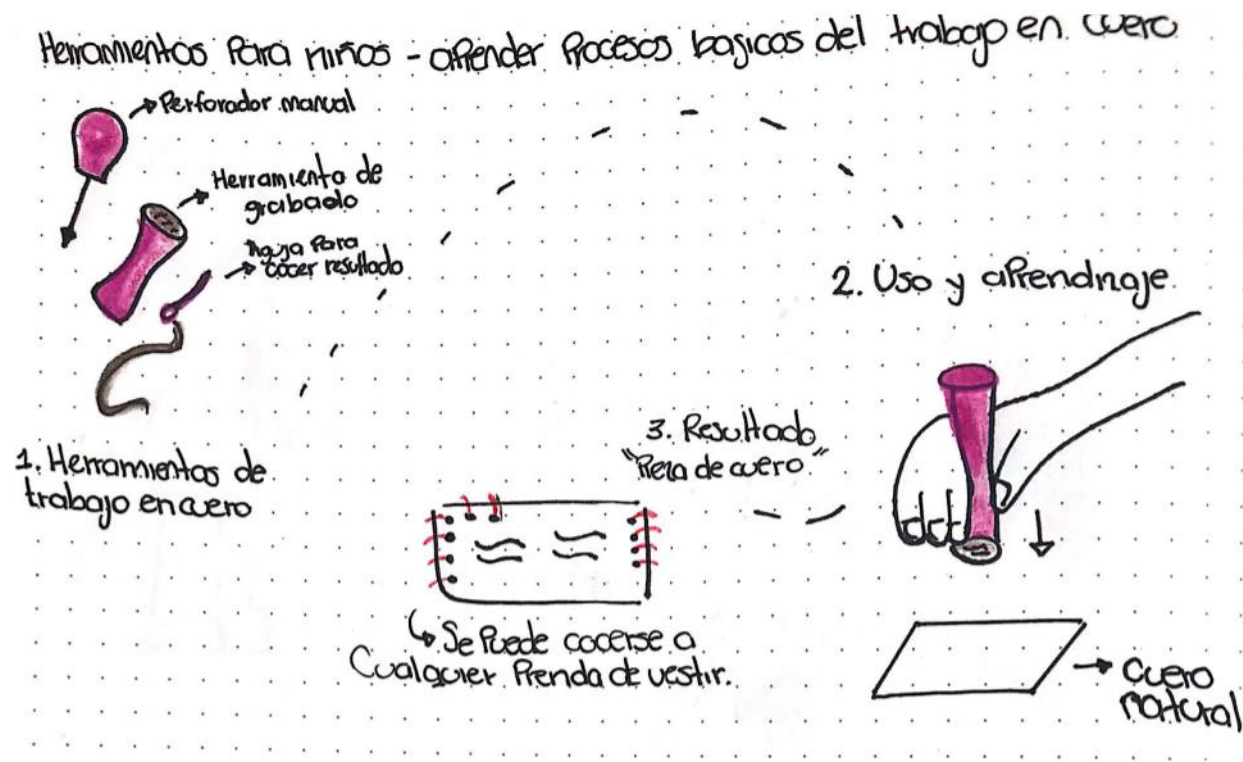 Herramientas para niños - aprender procesos basicos del trabajo en cuero
Perforador manual
Herramienta de
grabado
Aguja para
cocer resultado
1. Herramientas de
trabajo en cuero
2. Uso y aprendizaje
3. Resultado
"Pieza de cuero"
Se puede cocerse a
cualquier prenda de vestir.
Cuero
natural